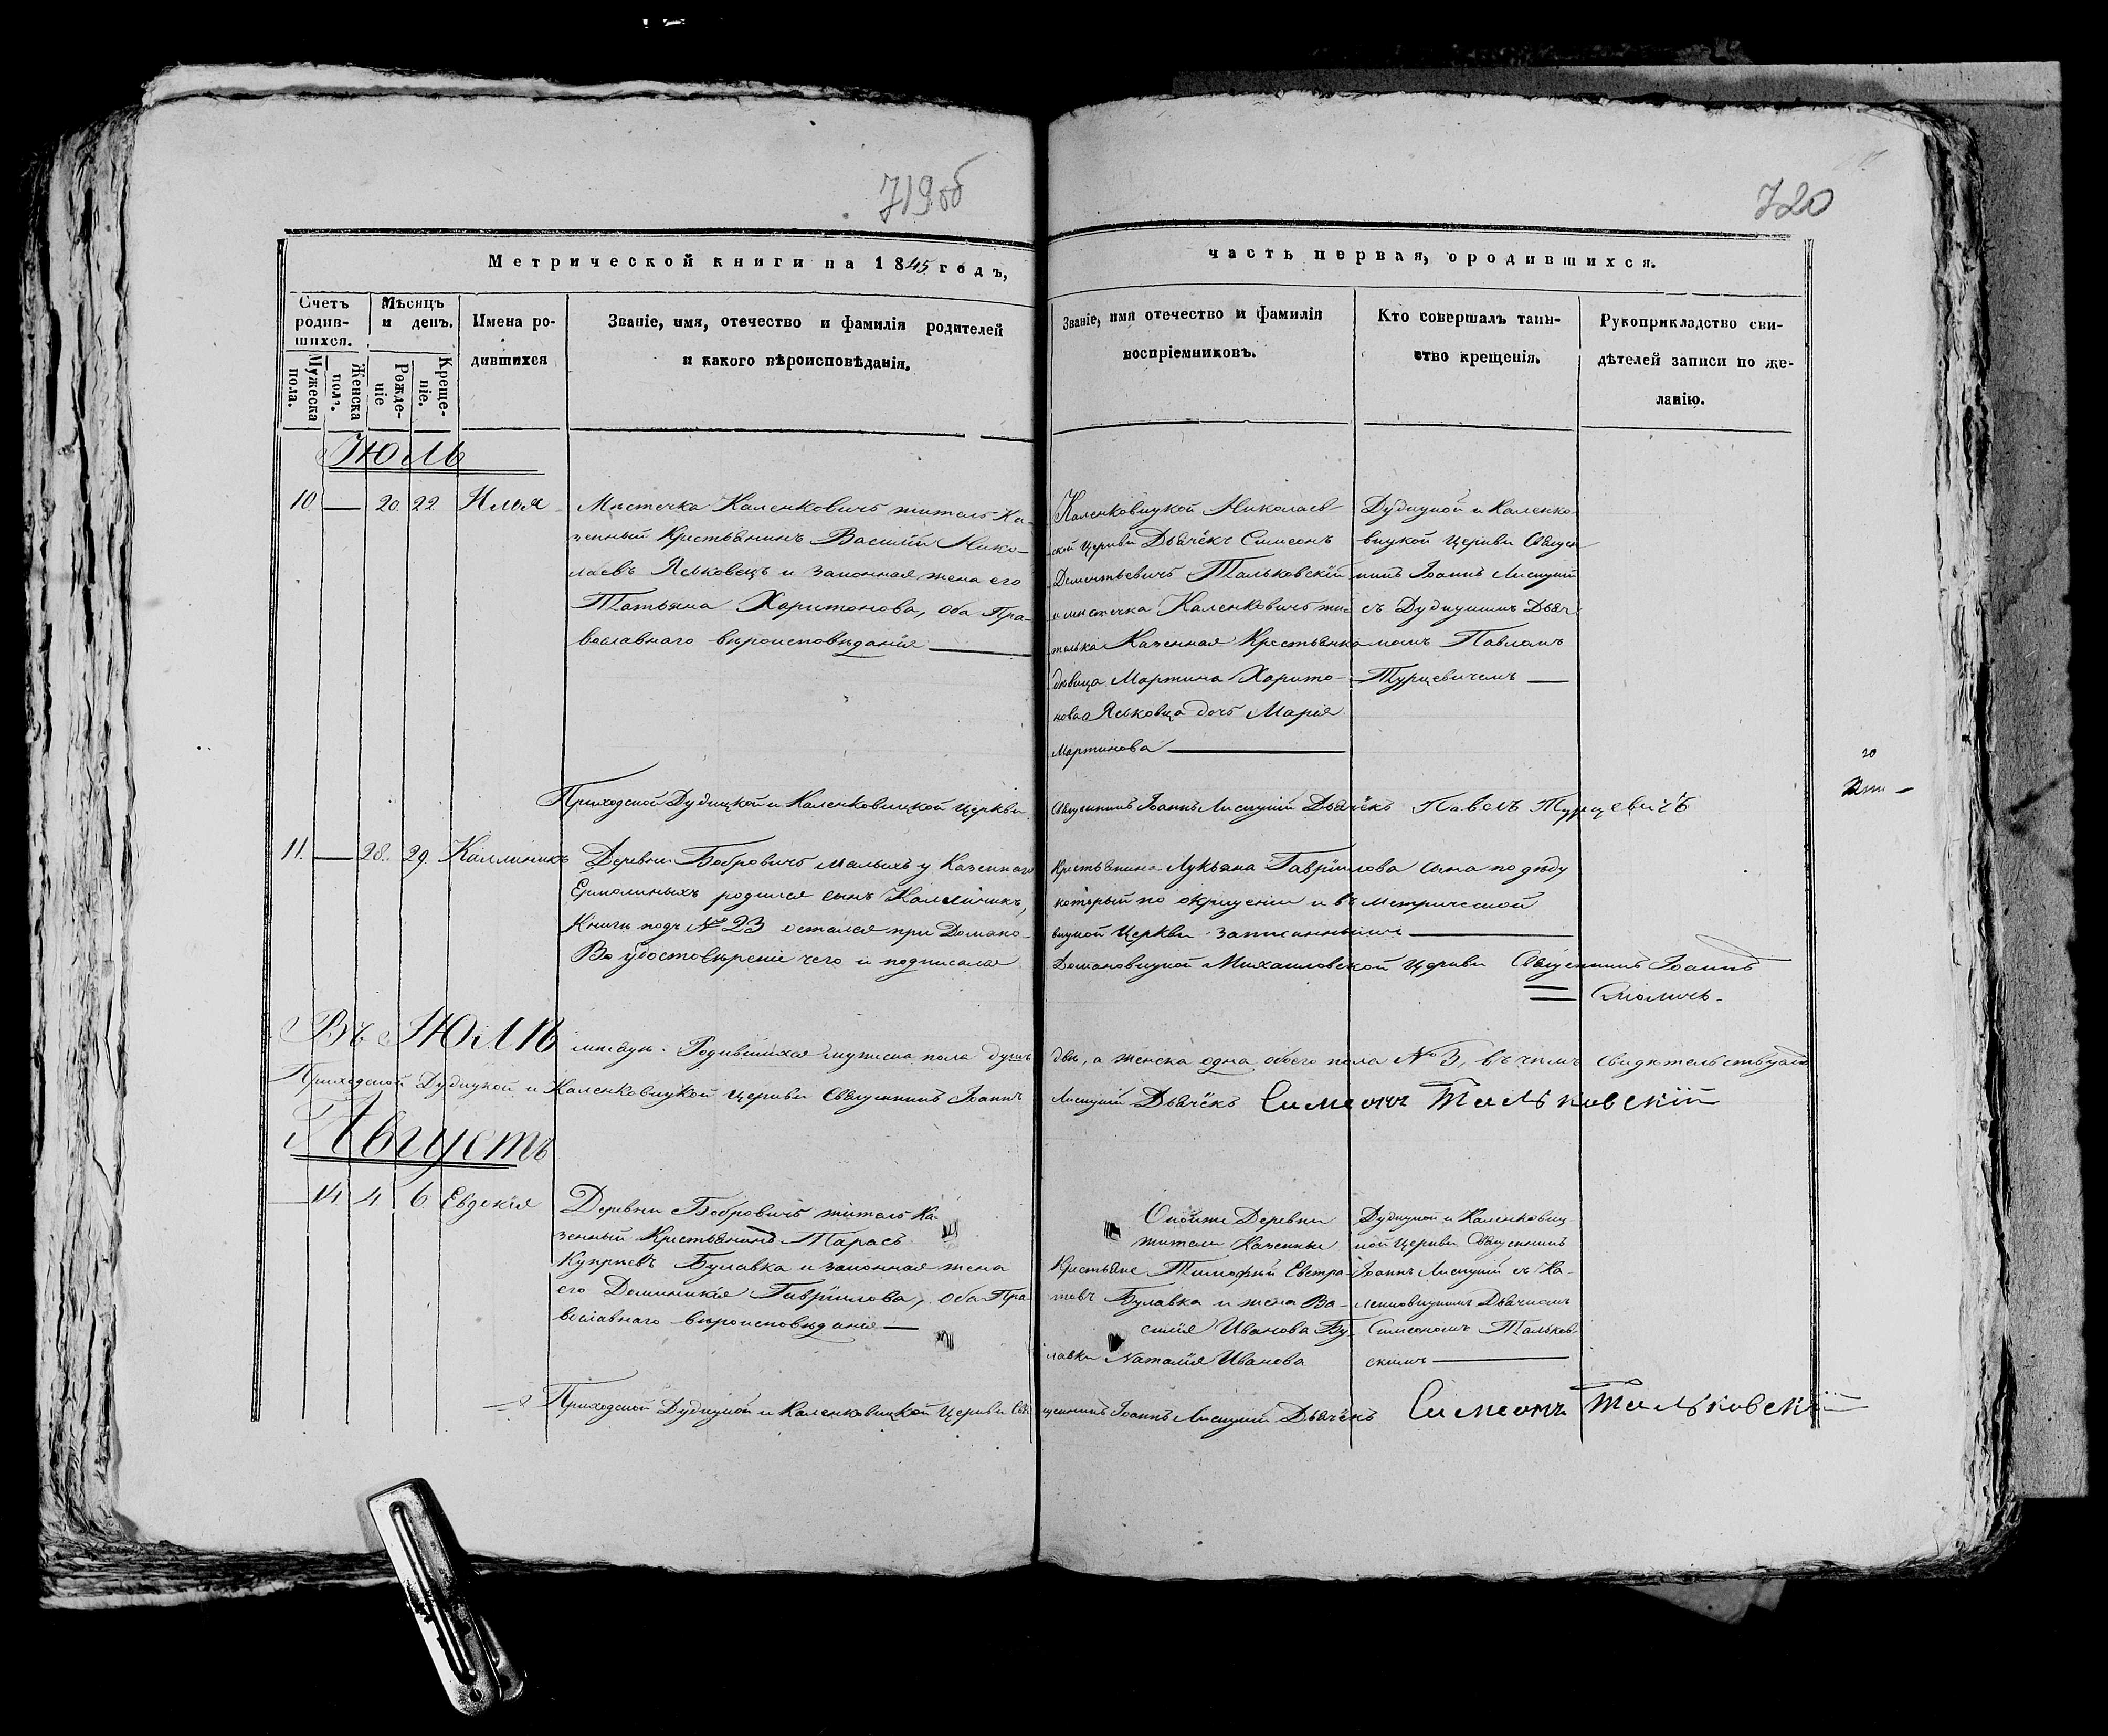 719об
720
Метрической книги на 1845 годъ,
часть первая, о родившихся.
Счетъ родив-
шихся.
Мѣсяцъ
и день.
Мужеска
пола.
Женска
пола.
Рожде-
ніе
Креще-
ніе.
Имена ро-
дившихся
Званіе, имя, отечество и фамилія родителей
и какого вѣроисповѣданія.
Званіе, имя отечество и фамилія
воспріемниковъ.
Кто совершалъ таин-
ство крещенія.
Рукоприкладство сви-
дѣтелей записи по же-
ланію.
Июль
10. — 20. 22. Илья
Мѣстечка Каленковичъ житель Ка-
зенный Крестьянинъ Василій Нико-
лаевъ Яськовецъ и законная жена его
Татьяна Харитонова, оба Пра-
вославнаго вѣроисповѣданія
Каленковицкой Николаев-
ской Церкви Дьячёкъ Симеонъ
Дементьевичъ Тальковскій
и мѣстечка Каленковичъ жи-
телька Казенная Крестьянка
дѣвица Мартина Харито-
нова Яськовца дочь Марія
Мартинова
Дудицкой и Каленко-
вицкой Церкви Священ-
никъ Іоаннъ Лисицкій
съ Дудицкимъ Дьяч-
комъ Павломъ
Турцевичемъ
Приходской Дудицкой и Каленковицкой Церкви Священникъ Іоаннъ Лисицкій Дьячёкъ Павелъ Турцевичъ
11. — 28. 29. Каллиникъ
Деревни Бобровичъ Малыхъ у Казеннаго Крестьянина Лукьяна Гавріилова сына по дѣду
Ермолиныхъ родился сынъ Каллиникъ, который по окрещеніи и въ Метрической
Книги подъ № 23 остался при Домано- вицкой Церкви записаннымъ
Во удостовѣреніе чего и подписался Домановицкой Михаиловской Церкви Священникъ Іоаннъ
Смоличъ.
Въ Июлѣ мѣсяцѣ. Родившихся мужеска пола душъ двѣ, а женска одна обоего пола № 3, въ чемъ свидѣтельствуемъ
Приходской Дудицкой и Каленковицкой Церкви Священникъ Іоаннъ Лисицкій Дьячёкъ Симеонъ Тальковскій
Августъ
— 14. 4. 6. Евдокія
Деревни Бобровичъ житель Ка-
зенный Крестьянинъ Тарасъ
Купріевъ Булавка и законная жена
его Доминикія Гавріилова, оба Пра-
вославнаго вѣроисповѣданія
Деревни
жители Казенные
Крестьяне Тимофѣй Евстра-
товъ Булавка и жена Ва-
силія Иванова Бу-
лавки Наталія Иванова
Дудицкой и Каленковиц-
кой Церкви Священникъ
Іоаннъ Лисицкій съ Ка-
ленковицкимъ Дьячкомъ
Симеономъ Тальков-
скимъ
Приходской Дудицкой и Каленковицкой Церкви Священникъ Іоаннъ Лисицкій Дьячёкъ Симеонъ Тальковскій